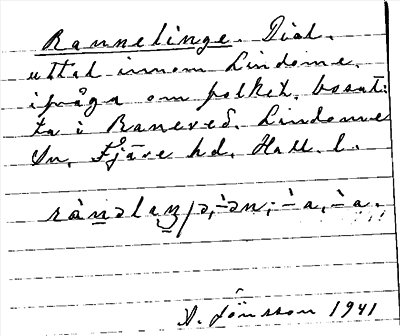 Rannelinge. Dial.
uttal inom Lindome.
ifråga om folket, bosat-
ta i Ranered. Lindome
Sn. Fjäre hd. Hall. l.
A. Jönsson 1941